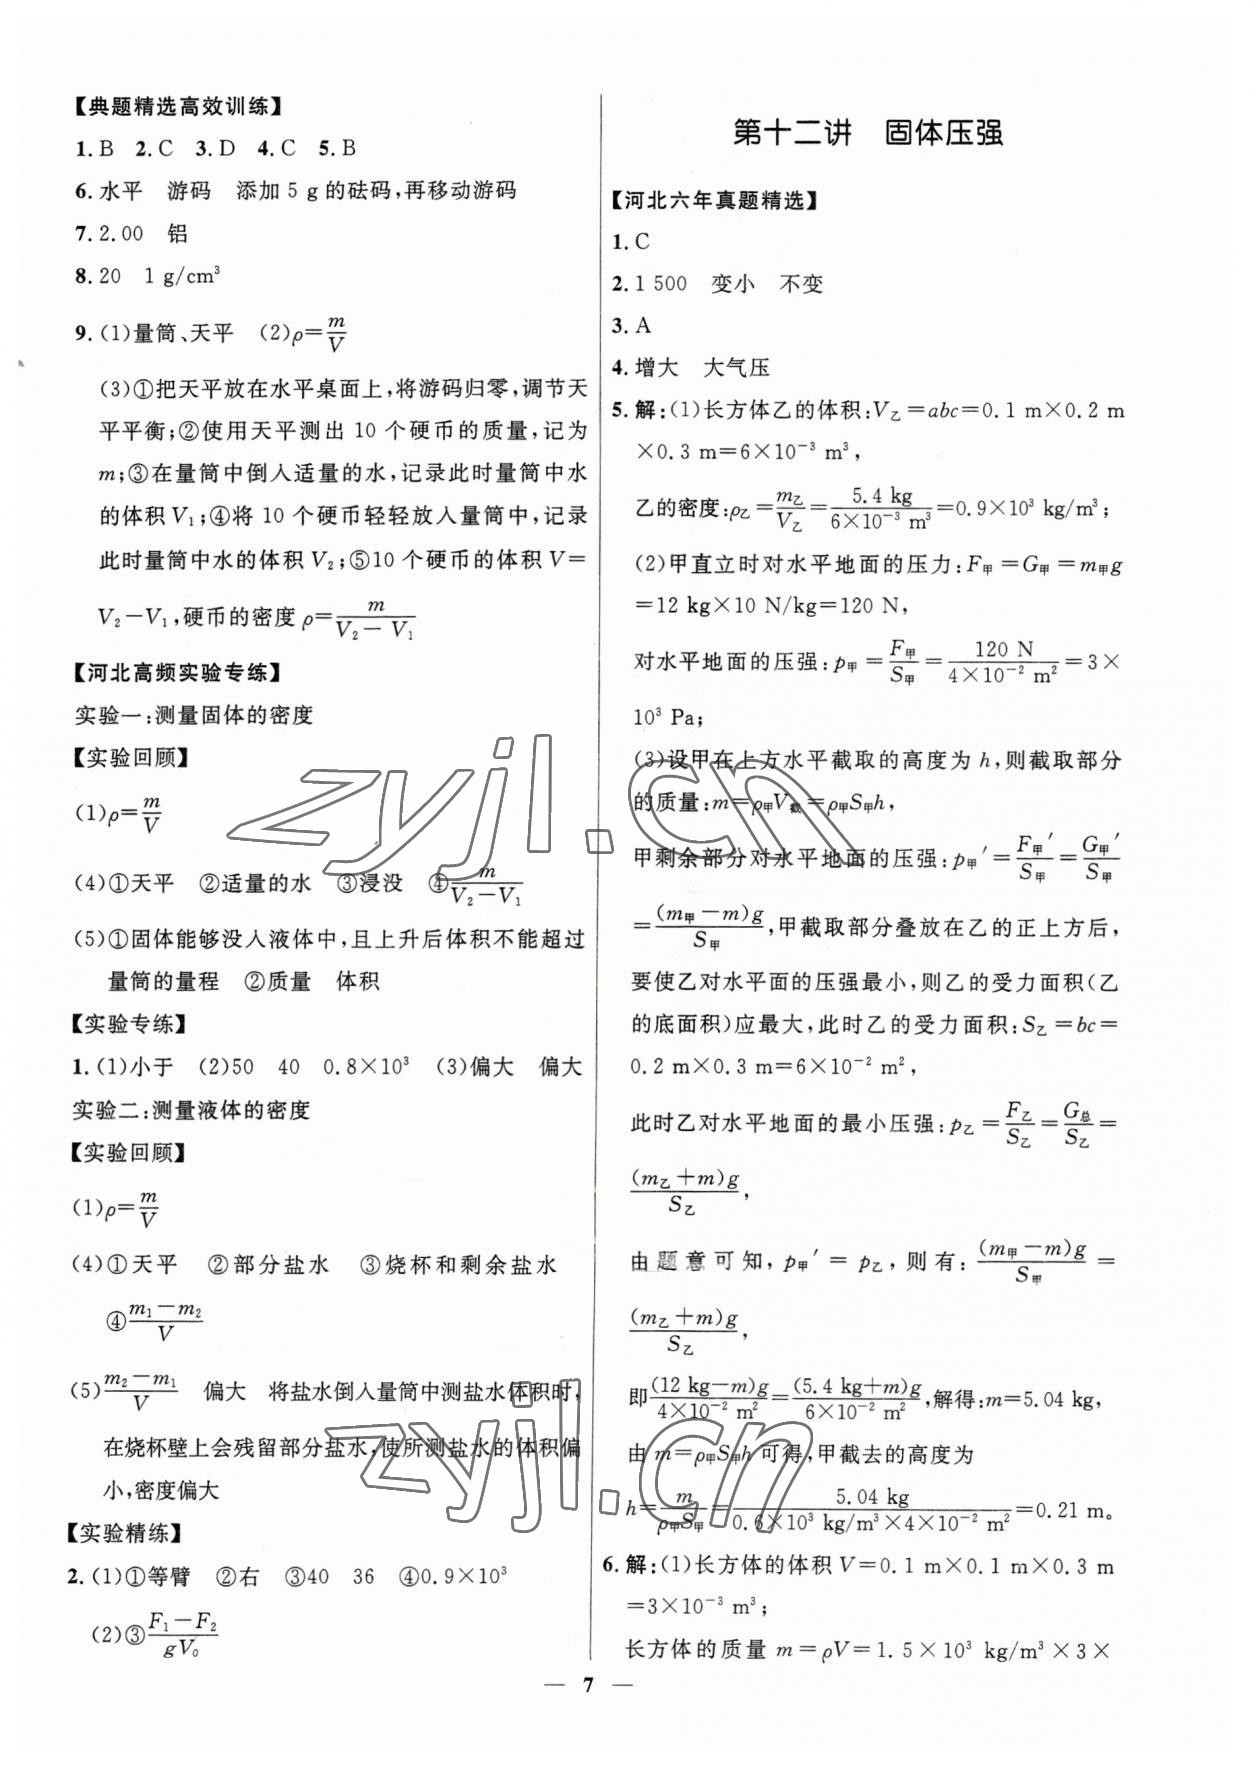 【典题精选高效训练】
1.B 2.C 3.D 4.C 5.B
6.水平 游码 添加 5 g 的砝码,再移动游码
7.2.00 铝
8.20 1 g/cm³
9.(1)量筒、天平 (2)ρ=m/V
(3)①把天平放在水平桌面上,将游码归零,调节天
平平衡;②使用天平测出 10 个硬币的质量,记为
m;③在量筒中倒入适量的水,记录此时量筒中水
的体积 V₁;④将 10 个硬币轻轻放入量筒中,记录
此时量筒中水的体积 V₂;⑤10 个硬币的体积 V=
V₂-V₁,硬币的密度 ρ=m/(V₂-V₁)
【河北高频实验专练】
实验一:测量固体的密度
【实验回顾】
(1)ρ=m/V
(4)①天平 ②适量的水 ③浸没 ④m/(V₂-V₁)
(5)①固体能够没入液体中,且上升后体积不能超过
量筒的量程 ②质量 体积
【实验专练】
1.(1)小于 (2)50 40 0.8×10³ (3)偏大 偏大
实验二:测量液体的密度
【实验回顾】
(1)ρ=m/V
(4)①天平 ②部分盐水 ③烧杯和剩余盐水
④(m₁-m₂)/V
(5)(m₂-m₁)/V 偏大 将盐水倒入量筒中测盐水体积时,
在烧杯壁上会残留部分盐水,使所测盐水的体积偏
小,密度偏大
【实验精练】
2.(1)①等臂 ②右 ③40 36 ④0.9×10³
(2)③(F₁-F₂)/(gV₀)
第十二讲 固体压强
【河北六年真题精选】
1.C
2.1 500 变小 不变
3.A
4.增大 大气压
5.解:(1)长方体乙的体积:V乙=abc=0.1 m×0.2 m
×0.3 m=6×10⁻³ m³,
乙的密度:ρ乙=m乙/V乙=5.4 kg/(6×10⁻³ m³)=0.9×10³ kg/m³;
(2)甲直立时对水平地面的压力:F甲=G甲=m甲g
=12 kg×10 N/kg=120 N,
对水平地面的压强:p甲=F甲/S甲=120 N/(4×10⁻² m²)=3×
10³ Pa;
(3)设甲在上方水平截取的高度为 h,则截取部分
的质量:m=ρ甲V截=ρ甲S甲h,
甲剩余部分对水平地面的压强:p甲′=F甲′/S甲=G甲′/S甲
=(m甲-m)g/S甲,甲截取部分叠放在乙的正上方后,
要使乙对水平面的压强最小,则乙的受力面积(乙
的底面积)应最大,此时乙的受力面积:S乙=bc=
0.2 m×0.3 m=6×10⁻² m²,
此时乙对水平地面的最小压强:p乙=F乙/S乙=G总/S乙=
(m乙+m)g/S乙,
由题意可知,p甲′=p乙,则有:(m甲-m)g/S甲=
(m乙+m)g/S乙,
即(12 kg-m)g/(4×10⁻² m²)=(5.4 kg+m)g/(6×10⁻² m²),解得:m=5.04 kg,
由 m=ρ甲S甲h 可得,甲截去的高度为
h=m/(ρ甲S甲)=5.04 kg/(0.6×10³ kg/m³×4×10⁻² m²)=0.21 m。
6.解:(1)长方体的体积 V=0.1 m×0.1 m×0.3 m
=3×10⁻³ m³;
长方体的质量 m=ρV=1.5×10³ kg/m³×3×
— 7 —
zyjl.cn
zyjl.cn